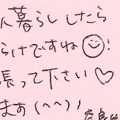 人暮らししたら
らけですね☺!
張って下さい♡
ます(^^)!